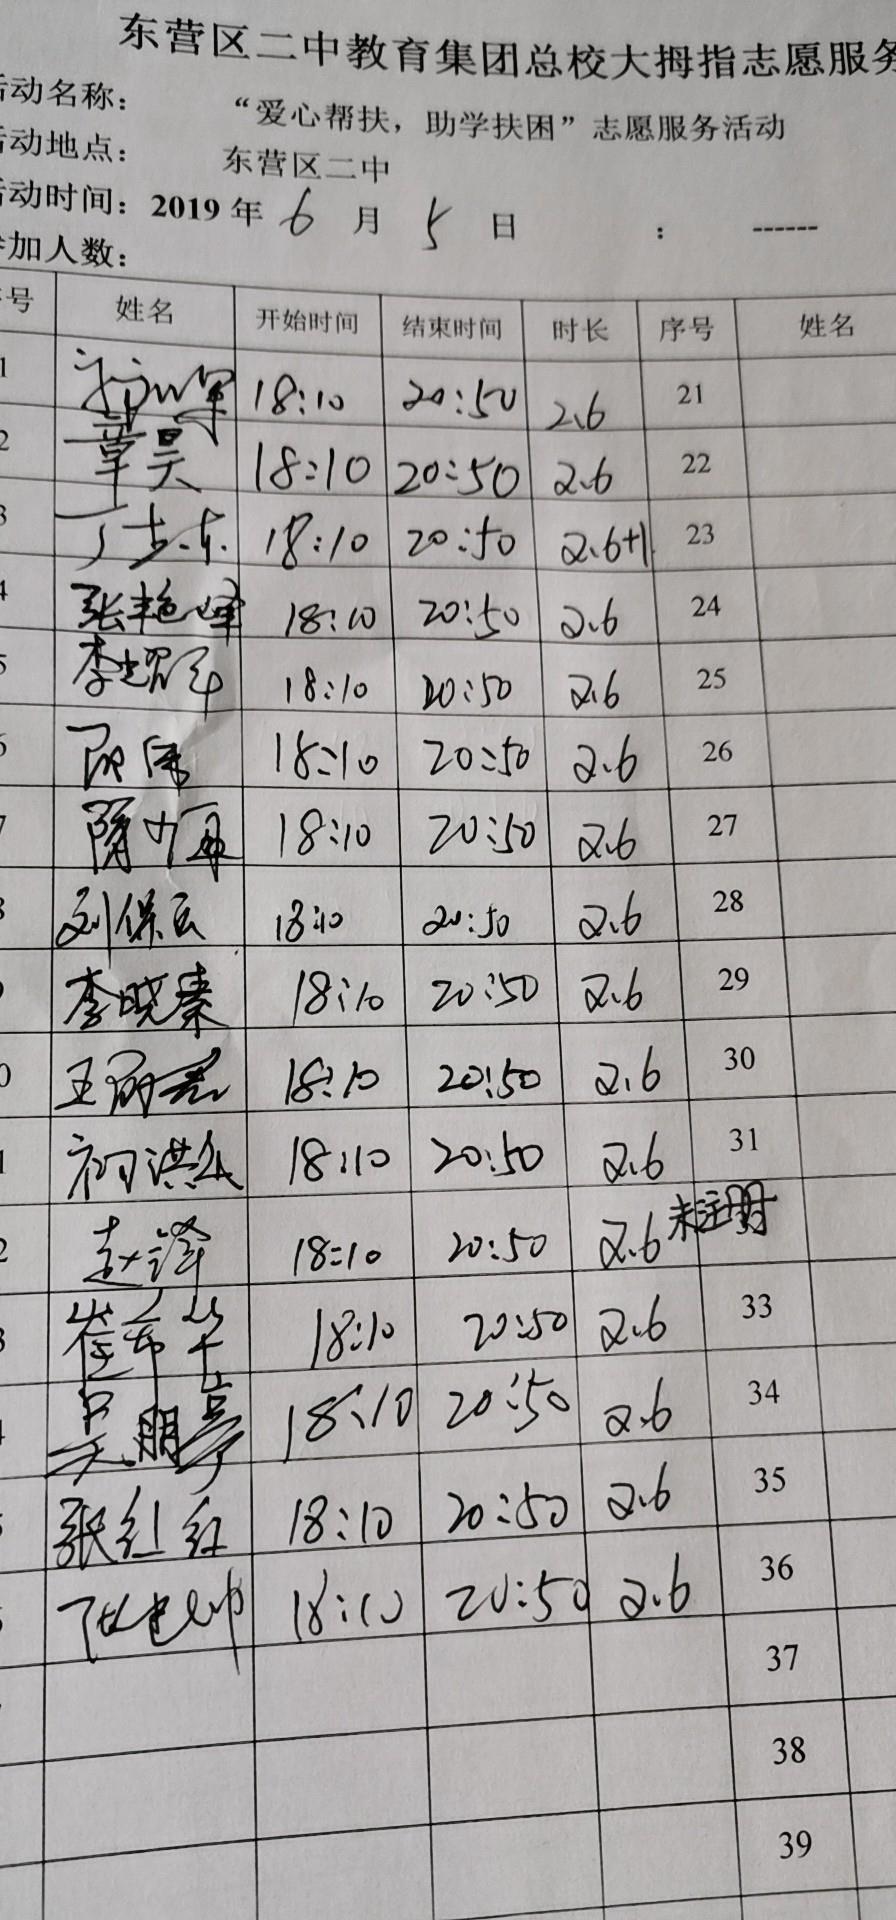 东营区二中教育集团总校大拇指志愿服务
活动名称： “爱心帮扶，助学扶困”志愿服务活动
活动地点： 东营区二中
活动时间：2019年 6 月 5 日 ： ------
参加人数：
序号 姓名 开始时间 结束时间 时长 序号 姓名
1 18:10 20:50 2.6 21
2 章昊 18:10 20:50 2.6 22
3 18:10 20:50 2.6+1 23
4 张艳峰 18:10 20:50 2.6 24
5 李 18:10 20:50 2.6 25
6 18:10 20:50 2.6 26
7 隋 18:10 20:50 2.6 27
8 刘保 18:10 20:50 2.6 28
9 李晓秦 18:10 20:50 2.6 29
0 王 18:10 20:50 2.6 30
1 初洪 18:10 20:50 2.6 31
2 赵泽 18:10 20:50 2.6 未注明
3 崔希华 18:10 20:50 2.6 33
4 吴朋亭 18:10 20:50 2.6 34
5 张红红 18:10 20:50 2.6 35
6 18:10 20:50 2.6 36
37
38
39